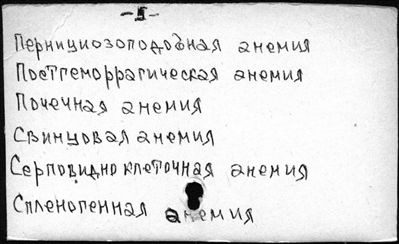 -5-
Пернициозоподобная анемия
Постгеморрагическая анемия
Почечная анемия
Свинцовая анемия
Серповидно клеточная анемия
Спленогенная анемия